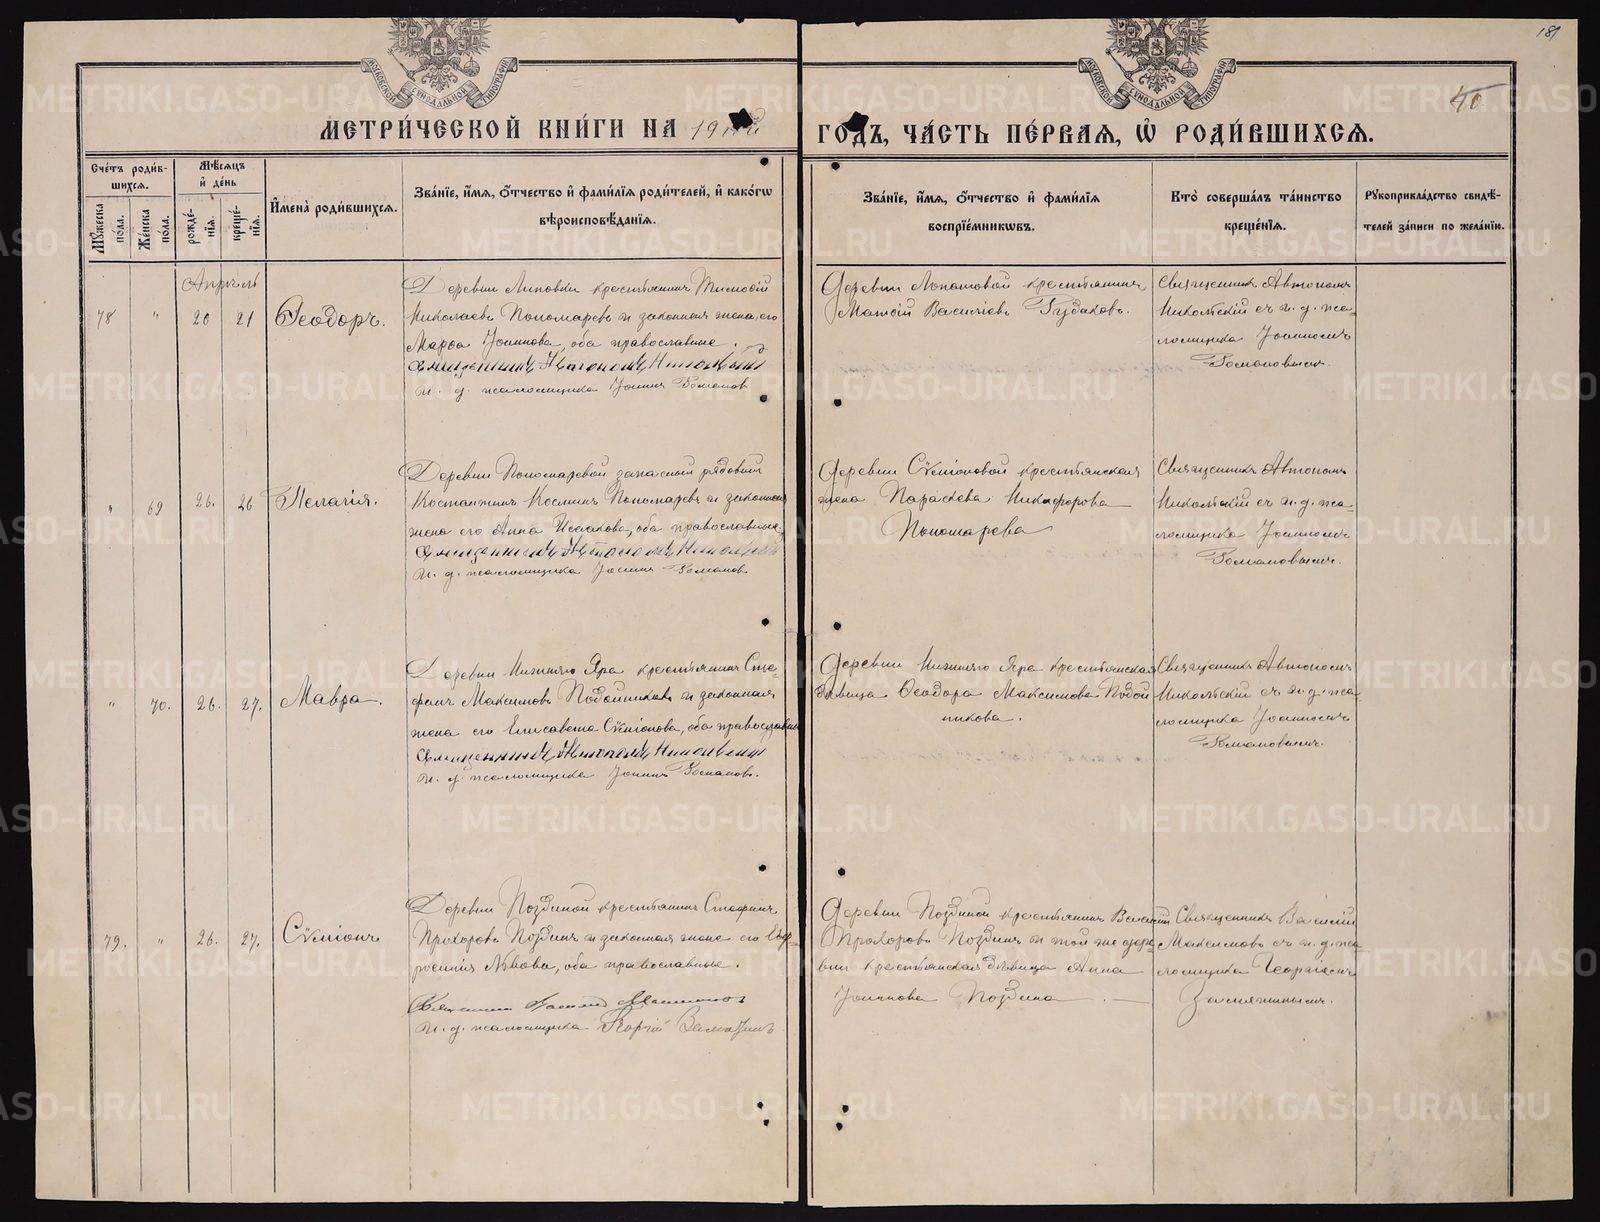 181
40
МОСКОВСКОЙ СѴНОДАЛЬНОЙ ТИПОГРАФІИ
МОСКОВСКОЙ СѴНОДАЛЬНОЙ ТИПОГРАФІИ
МЕТРИ́ЧЕСКОЙ КНИ́ГИ НА 19
ГО́ДЪ, ЧА́СТЬ ПЕ́РВАЯ, Ѡ҆ РОДИ́ВШИХСЯ.
Сче́тъ роди́в-
шихся.
Мꙋ́жеска по́ла.
Же́нска по́ла.
Мѣ́сяцъ
и҆ де́нь
рожде́-
нїя.
креще́-
нїя.
И҆мена̀ роди́вшихся.
Зва́нїе, и҆́мя, ѻ҆́тчество и҆ фами́лїя роди́телей, и҆ како́гѡ
вѣроисповѣ́данїя.
Зва́нїе, и҆́мя, ѻ҆́тчество и҆ фами́лїя
воспрїе́мникѡвъ.
Кто̀ соверша́лъ та́инство
креще́нїя.
Рꙋкоприкла́дство свидѣ́-
телей за́писи по жела́нїю.
Апрѣль
78 " 20 21 Ѳеодоръ.
Деревни Липовки крестьянинъ Тимоѳій
Николаевъ Пономаревъ и законная жена его
Марѳа Іоаннова, оба православные.
Священникъ Автономъ Никольскій
И. д. псаломщика Іоаннъ Романовъ
Деревни Лопатовой крестьянинъ
Матѳій Василіевъ Гудаковъ.
Священникъ Автономъ
Никольскій съ и. д. пса-
ломщика Іоанномъ
Романовымъ.
" 69 26. 26 Пелагія.
Деревни Пономаревой запасный рядовый
Костантинъ Косминъ Пономаревъ и законная
жена его Анна Исаакова, оба православные.
Священникъ Автономъ Никольскій
И. д. псаломщика Іоаннъ Романовъ.
Деревни Сѵміоновой крестьянская
жена Параскева Никифорова
Пономарева
Священникъ Автономъ
Никольскій съ и. д. пса-
ломщика Іоанномъ
Романовымъ.
" 70. 26. 27. Мавра.
Деревни Нижняго Яра крестьянинъ Сте-
фанъ Максимовъ Подойниковъ и законная
жена его Елисавета Сѵміонова, оба православные
Священникъ Автономъ Никольскій
И. д. псаломщика Іоаннъ Романовъ.
Деревни Нижняго Яра крестьянская
дѣвица Ѳеодора Максимова Подой
никова.
Священникъ Автономъ
Никольскій съ и. д. пса-
ломщика Іоанномъ
Романовымъ.
79. " 26. 27. Сѵміонъ
Деревни Поздиной крестьянинъ Стефанъ
Прохоровъ Поздинъ и законная жена его Евф-
росинія Львова, оба православные.
Священникъ Василій Максимовъ
И. д. псаломщика Георгій Замятинъ
Деревни Поздиной крестьянинъ Василій
Прохоровъ Поздинъ и той же дере-
вни крестьянская дѣвица Анна
Іоаннова Поздина
Священникъ Василій
Максимовъ съ и. д. пса
ломщика Георгіемъ
Замятинымъ.
METRIKI.GASO-URAL.RU